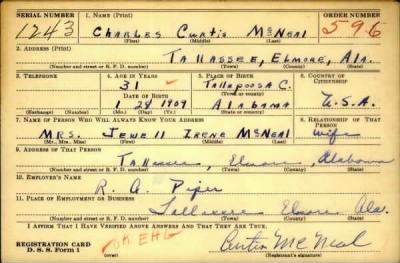 SERIAL NUMBER 1. NAME (Print) ORDER NUMBER
1243 CHARLES Curtis McNeal 596
(First) (Middle) (Last)
2. ADDRESS (Print)
TALLASSEE, ELMORE, Ala.
(Number and street or R. F. D. number) (Town) (County) (State)
3. TELEPHONE 4. AGE IN YEARS 5. PLACE OF BIRTH 6. COUNTRY OF CITIZENSHIP
31 Tallapoosa C.
(Town or county)
DATE OF BIRTH
1 28 1909 Alabama U.S.A.
(Exchange) (Number) (Mo.) (Day) (Yr.) (State or country)
7. NAME OF PERSON WHO WILL ALWAYS KNOW YOUR ADDRESS 8. RELATIONSHIP OF THAT PERSON
MRS. Jewell Irene McNeal wife
(Mr., Mrs., Miss) (First) (Middle) (Last)
9. ADDRESS OF THAT PERSON
Tallassee, Elmore, Alabama
(Number and street or R. F. D. number) (Town) (County) (State)
10. EMPLOYER'S NAME
R. A. Piper
11. PLACE OF EMPLOYMENT OR BUSINESS
Tallassee Elmore Ala.
(Number and street or R. F. D. number) (Town) (County) (State)
I AFFIRM THAT I HAVE VERIFIED ABOVE ANSWERS AND THAT THEY ARE TRUE.
OK EHG
REGISTRATION CARD
D. S. S. Form 1 Curtis McNeal
(over) (Registrant's signature)